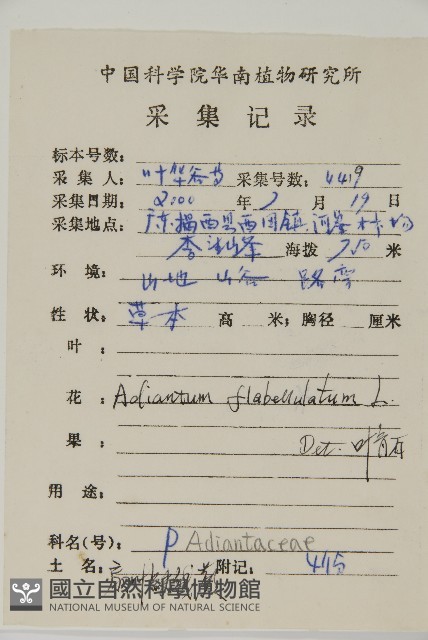 中国科学院华南植物研究所
采集记录
标本号数:
采集人: 叶华谷等 采集号数: 4419
采集日期: 2000 年 7 月 19 日
采集地点: 广东揭西县西田镇河 林场
李 峰 海拨 750 米
环境: 山地 山谷 路旁
性状: 草本 高 米; 胸径 厘米
叶:
花: Adiantum flabellulatum L.
果: Det. 叶育石
用途:
科名(号): P Adiantaceae
土名: 附记: 4415
國立自然科學博物館
NATIONAL MUSEUM OF NATURAL SCIENCE